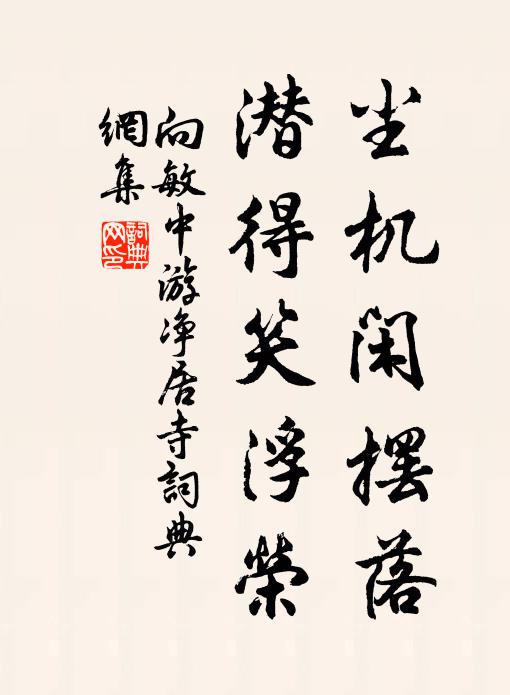 尘机闲摆落
潜得笑浮榮
向敏中游净居寺詞典
網集
詞典网印